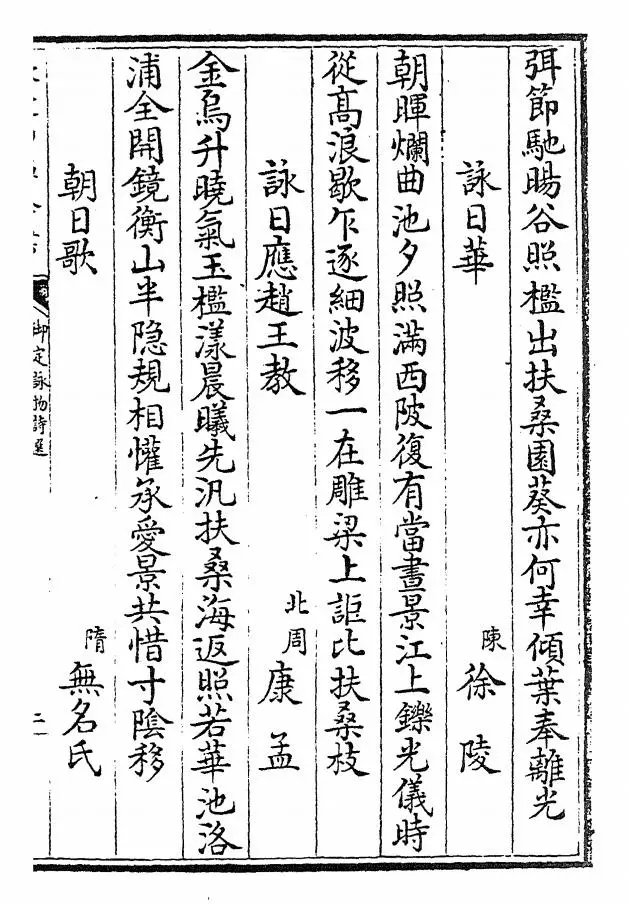 弭節馳暘谷照檻出扶桑園葵亦何幸傾葉奉離光
詠日華 陳 徐陵
朝暉爛曲池夕照滿西陂復有當晝景江上鑠光儀時
從高浪歇乍逐細波移一在雕梁上詎比扶桑枝
詠日應趙王教 北周 康孟
金烏升曉氣玉檻漾晨曦先汎扶桑海返照若華池洛
浦全開鏡衡山半隐規相懽承愛景共惜寸陰移
朝日歌 隋 無名氏
御定詠物詩選